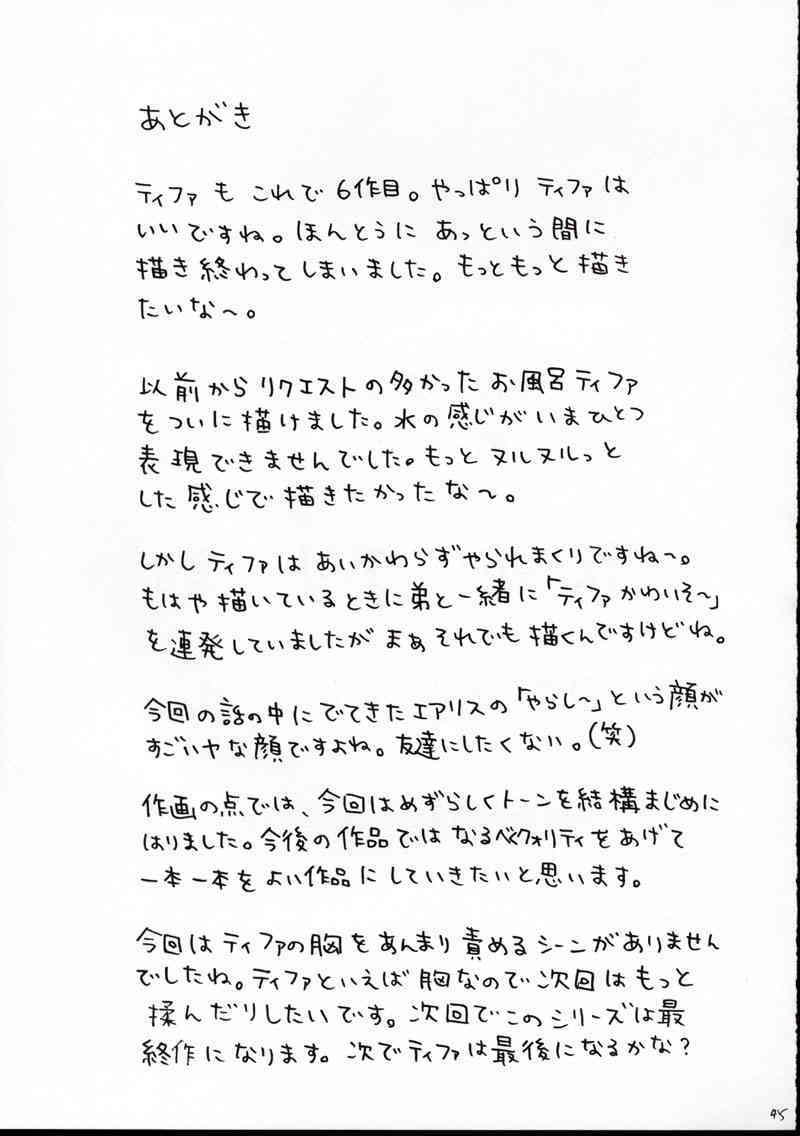 あとがき
ティファも これで 6作目。やっぱり ティファは
いいですね。ほんとうに あっという間に
描き終わってしまいました。もっともっと描き
たいな〜。
以前からリクエストの多かった お風呂ティファ
をついに描けました。水の感じがいまひとつ
表現できませんでした。もっと ヌルヌルっと
した感じで描きたかったな〜。
しかし ティファは あいかわらずやられまくりですね〜。
もはや描いているときに弟と一緒に「ティファかわいそ〜」
を連発していましたが まぁ それでも 描くんですけどね。
今回の話の中にでてきたエアリスの「やらし〜」という顔が
すごいヤな顔ですよね。友達にしたくない。(笑)
作画の点では、今回はめずらしくトーンを結構まじめに
はりました。今後の作品では なるべくクォリティをあげて
一本一本をよい作品にしていきたいと思います。
今回はティファの胸をあんまり責めるシーンがありません
でしたね。ティファといえば胸なので次回はもっと
揉んだりしたいです。次回でこのシリーズは最
終作になります。次でティファは最後になるかな?
45